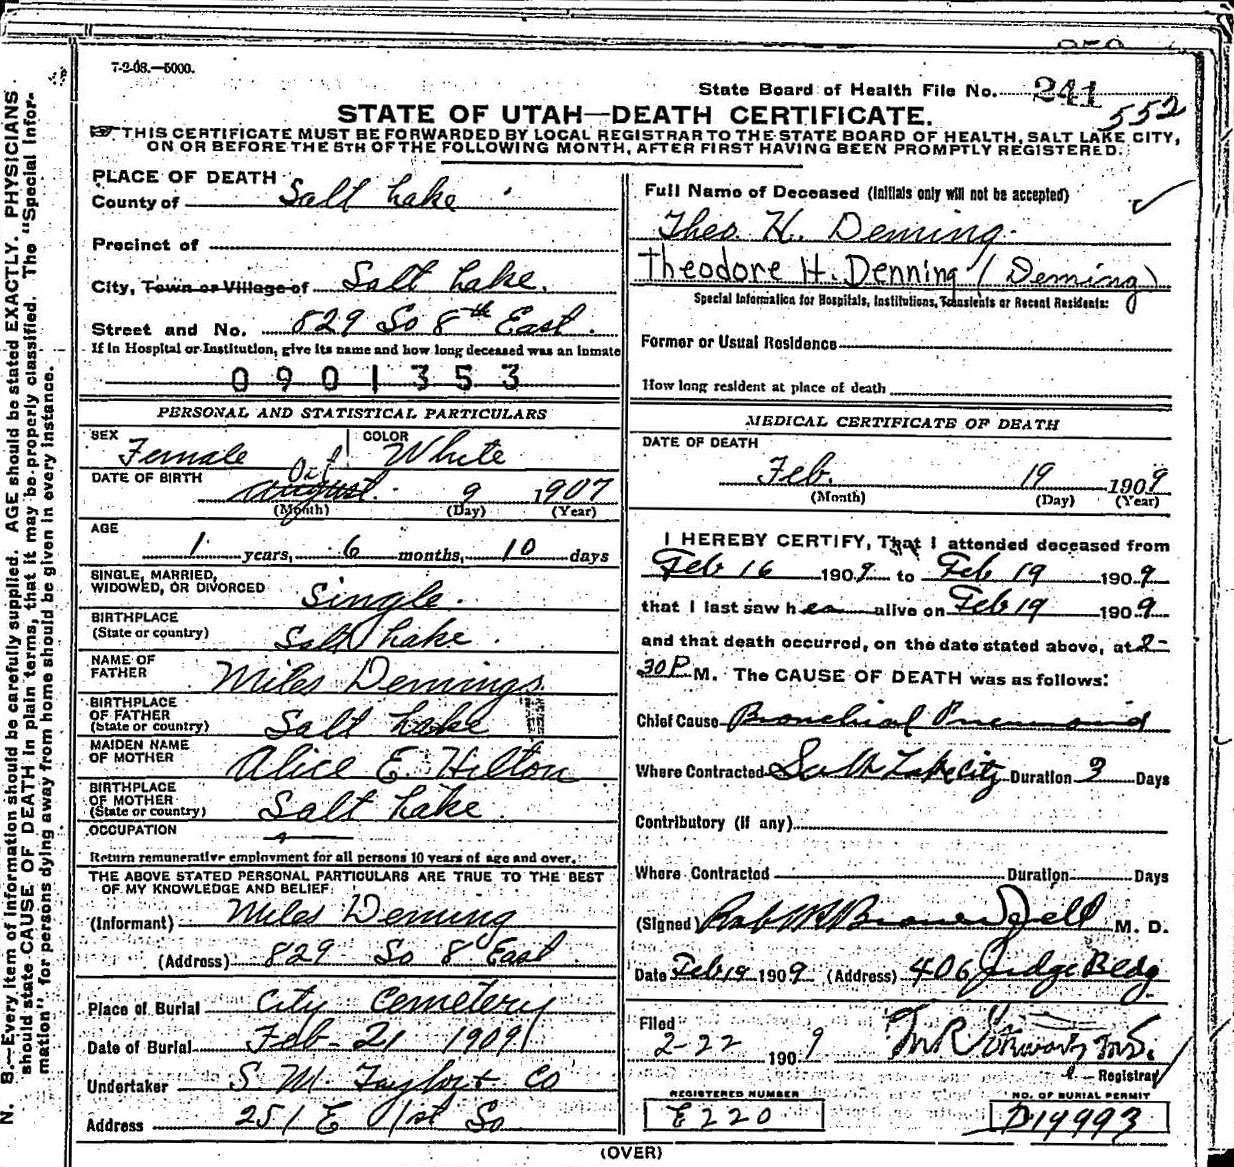 7-2-08.—5000.
State Board of Health File No. 241
552
STATE OF UTAH—DEATH CERTIFICATE.
THIS CERTIFICATE MUST BE FORWARDED BY LOCAL REGISTRAR TO THE STATE BOARD OF HEALTH, SALT LAKE CITY,
ON OR BEFORE THE 5TH OF THE FOLLOWING MONTH, AFTER FIRST HAVING BEEN PROMPTLY REGISTERED.
N. B.—Every item of information should be carefully supplied. AGE should be stated EXACTLY. PHYSICIANS
should state CAUSE OF DEATH in plain terms, that it may be properly classified. The "Special Infor-
mation" for persons dying away from home should be given in every instance.
PLACE OF DEATH
County of Salt Lake
Precinct of
City, Town or Village of Salt Lake.
Street and No. 829 So 8th East.
If in Hospital or Institution, give its name and how long deceased was an inmate
0901353
PERSONAL AND STATISTICAL PARTICULARS
SEX Female COLOR White
DATE OF BIRTH August 9 1907
(Month) (Day) (Year)
AGE
1 years, 6 months, 10 days
SINGLE, MARRIED,
WIDOWED, OR DIVORCED Single.
BIRTHPLACE
(State or country) Salt Lake.
NAME OF
FATHER Miles Demings
BIRTHPLACE
OF FATHER
(State or country) Salt Lake
MAIDEN NAME
OF MOTHER Alice E Hilton
BIRTHPLACE
OF MOTHER
(State or country) Salt Lake.
OCCUPATION
Return remunerative employment for all persons 10 years of age and over.
THE ABOVE STATED PERSONAL PARTICULARS ARE TRUE TO THE BEST
OF MY KNOWLEDGE AND BELIEF.
(Informant) Miles Deming
(Address) 829 So 8 East
Place of Burial City Cemetery
Date of Burial Feb-21 1909
Undertaker S M Taylor + Co
Address 251 E 1st So
Full Name of Deceased (Initials only will not be accepted)
Theo. H. Deming.
Theodore H. Denning (Deming)
Special Information for Hospitals, Institutions, Transients or Recent Residents:
Former or Usual Residence
How long resident at place of death
MEDICAL CERTIFICATE OF DEATH
DATE OF DEATH
Feb. 19 1909
(Month) (Day) (Year)
I HEREBY CERTIFY, That I attended deceased from
Feb 16 1909 to Feb 19 1909
that I last saw her alive on Feb 19 1909
and that death occurred, on the date stated above, at 2-
30 P M. The CAUSE OF DEATH was as follows:
Chief Cause Bronchial Pneumonia
Where Contracted Salt Lake City Duration 3 Days
Contributory (if any)
Where Contracted Duration Days
(Signed) M. D.
Date Feb 19 1909 (Address) 406 Judge Bldg
Filed
2-22 1909
Registrar
REGISTERED NUMBER
E220
NO. OF BURIAL PERMIT
D14993
(OVER)